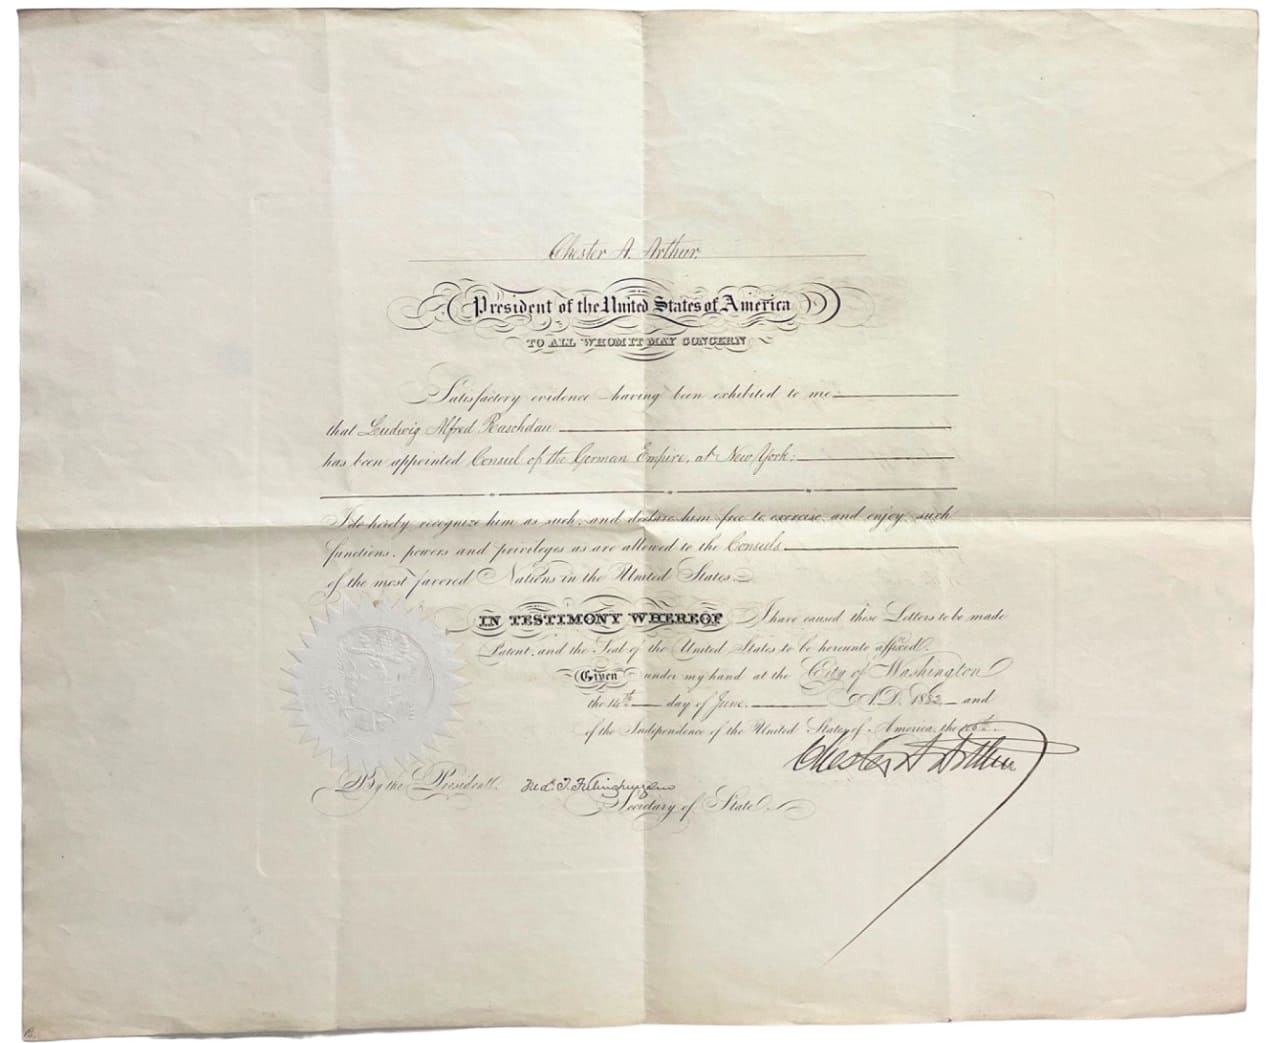 Chester A. Arthur.
President of the United States of America
TO ALL WHOM IT MAY CONCERN
Satisfactory evidence having been exhibited to me
that Ludwig Alfred Raschdau
has been appointed Consul of the German Empire, at New York;
I do hereby recognize him as such, and declare him free to exercise and enjoy such
functions, powers and privileges as are allowed to the Consuls
of the most favored Nations in the United States.
IN TESTIMONY WHEREOF I have caused these Letters to be made
Patent, and the Seal of the United States to be hereunto affixed.
Given under my hand at the City of Washington
the 14th day of June, A.D. 1882 and
of the Independence of the United States of America, the
Chester A Arthur
By the President. Fredk. T. Frelinghuysen
Secretary of State.